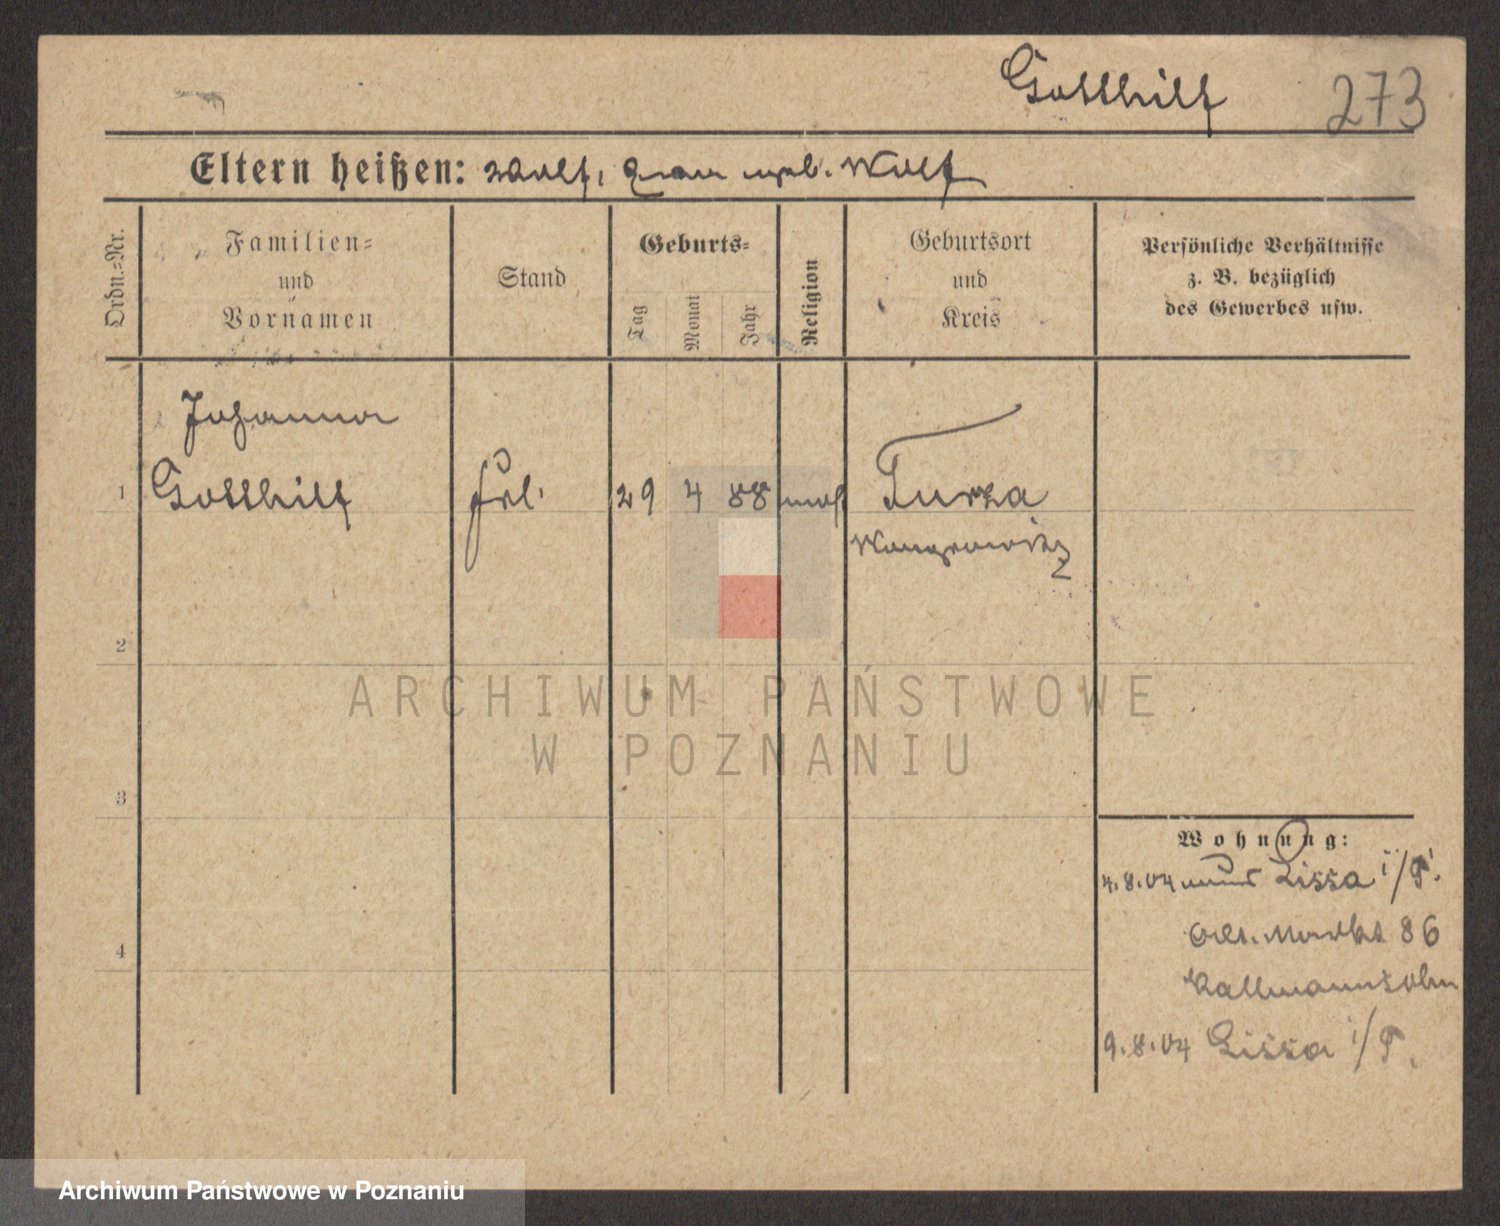 Gotthilf 273
Eltern heißen: Wolf, geb. Wolf
Ordn.=Nr.
Familien=
und
Vornamen
Stand
Geburts=
Tag
Monat
Jahr
Religion
Geburtsort
und
Kreis
Persönliche Verhältnisse
z. B. bezüglich
des Gewerbes usw.
Johanna
1 Gotthilf Frl. 29 4 88 mos Turza
Wongrowitz
2
3
4
Wohnung:
4.8.04 Lissa i/P.
Markt 86
Kallmannsohn
9.8.04 Lissa i/P.
ARCHIWUM PAŃSTWOWE
W POZNANIU
Archiwum Państwowe w Poznaniu